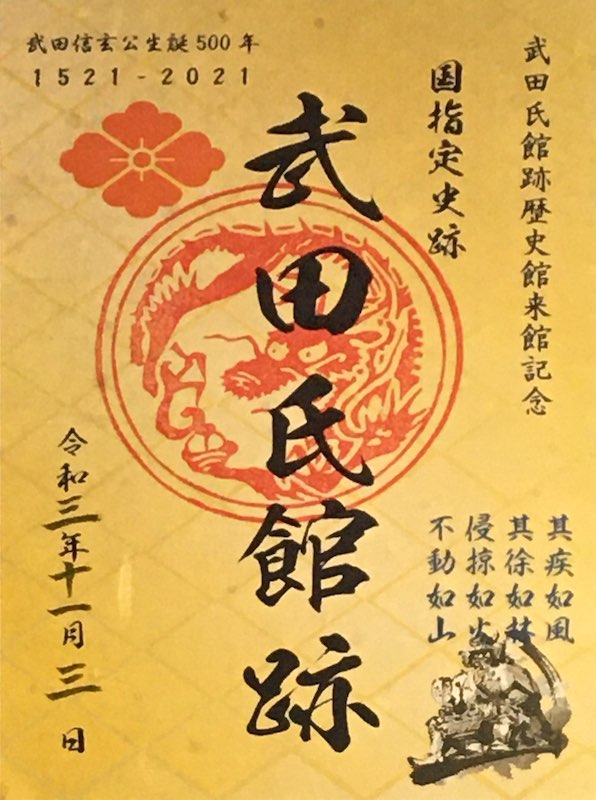 武田氏館跡歴史館来館記念
国指定史跡
武田氏館跡
武田信玄公生誕500年
1521-2021
令和三年十一月三日
其疾如風
其徐如林
侵掠如火
不動如山